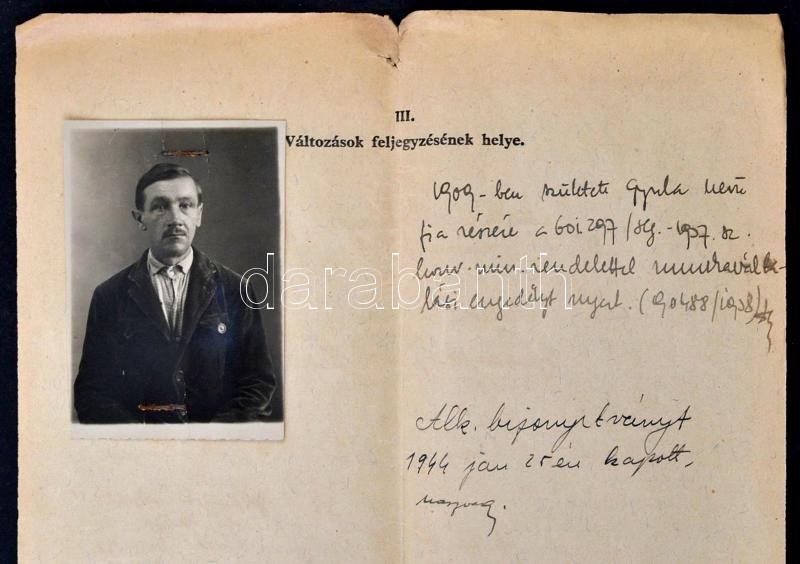 III.
Változások feljegyzésének helye.
1909-ben született Gyula nevű
fia részére a 601297/ -1937. sz.
honv. min. rendelettel munkavállalási
engedélyt nyert. (190488/1938)
darabanth
Alk. bizonyítványt
1944 jan 25 én kapott.